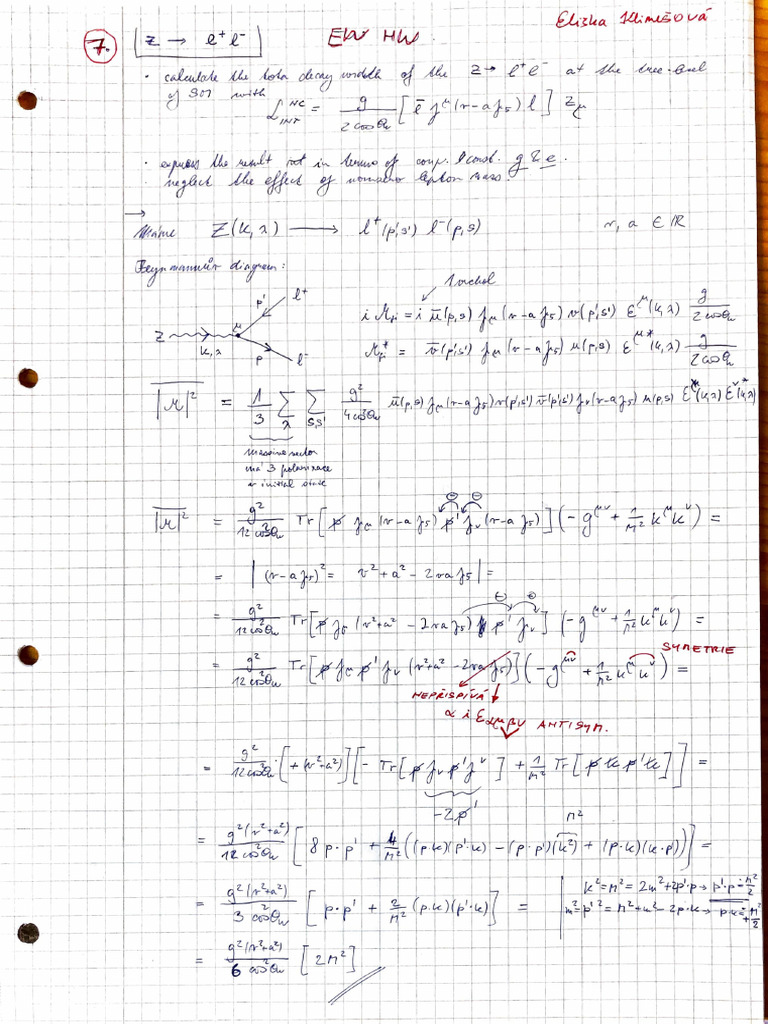 Eliška Klimešová
7. Z → l⁺l⁻ EW HW.
• calculate the total decay width of the Z → l⁺l⁻ at the tree-level
of SM with
ℒ_INT^NC = g/(2cosθ_w) [ l̄ γ^μ (v-aγ₅) l ] Z_μ
• express the result not in terms of coup. const. g & e.
neglect the effect of nonzero lepton mass.
→
Máme Z(k,λ) ⟶ l⁺(p',s') l⁻(p,s) v, a ∈ ℝ
Feynmannův diagram:
1 vrchol
l⁺
p'
Z μ
k,λ
p l⁻
iM_fi = i ū(p,s) γ_μ (v-aγ₅) v(p',s') ε^μ(k,λ) g/(2cosθ_w)
M_fi* = v̄(p',s') γ_μ (v-aγ₅) u(p,s) ε^μ*(k,λ) g/(2cosθ_w)
|M|² = 1/3 Σ_λ Σ_s,s' g²/(4cos²θ_w) ū(p,s) γ_μ (v-aγ₅) v(p',s') v̄(p',s') γ_ν (v-aγ₅) u(p,s) ε^μ(k,λ) ε^ν*(k,λ)
má 3 polarizace
v initial state
|M|² = g²/(12cos²θ_w) Tr[ p̸ γ_μ (v-aγ₅) p̸' γ_ν (v-aγ₅) ] ( -g^μν + 1/M² k^μ k^ν ) =
= | (v-aγ₅)² = v²+a² - 2vaγ₅ | =
= g²/(12cos²θ_w) Tr[ p̸ γ_μ (v²+a² - 2vaγ₅) p̸' γ_ν ] ( -g^μν + 1/M² k^μ k^ν ) =
SYMETRIE
= g²/(12cos²θ_w) Tr[ p̸ γ_μ p̸' γ_ν (v²+a² - 2vaγ₅) ] ( -g^μν + 1/M² k^μ k^ν ) =
NEPŘISPÍVÁ
∝ i ε_αμβν ANTISYM.
= g²/(12cos²θ_w) · [ +(v²+a²) ] [ - Tr[ p̸ γ_ν p̸' γ^ν ] + 1/M² Tr[ p̸ k̸ p̸' k̸ ] ] =
-2p̸' M²
= g²(v²+a²)/(12cos²θ_w) [ 8 p·p' + 4/M² ( (p·k)(p'·k) - (p·p')(k²) + (p·k)(k·p') ) ] =
= g²(v²+a²)/(3cos²θ_w) [ p·p' + 2/M² (p·k)(p'·k) ] = | k² = M² = 2m² + 2p'·p → p'·p = M²/2
m² = p'² = M² + m² - 2p·k → p·k = + M²/2
= g²(v²+a²)/(6cos²θ_w) [ 2M² ]